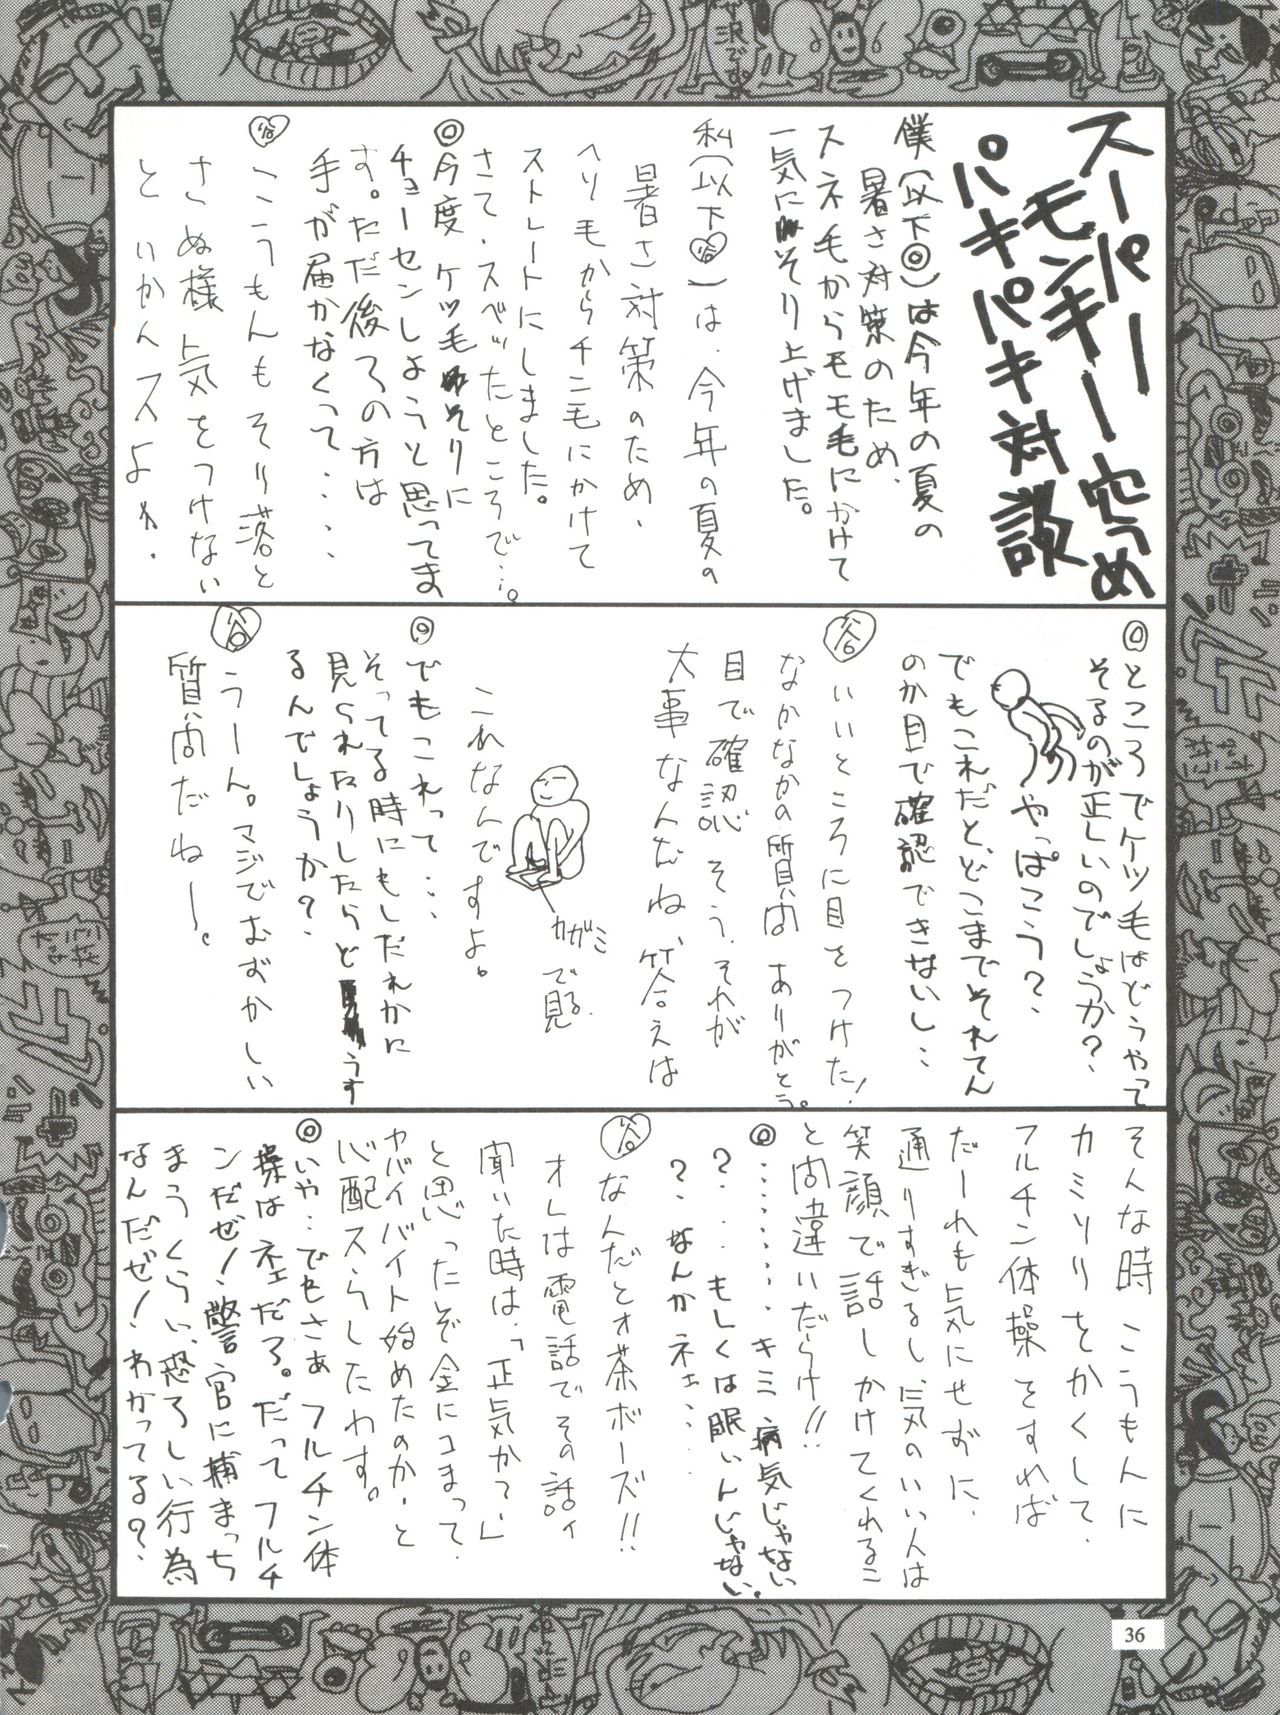 スーパー
モンキー
パキパキ対談
僕(以下◎)は今年の夏の
暑さ対策のため、
スネ毛からモモ毛にかけて
一気にそり上げました。
私(以下谷)は、今年の夏の
暑さ対策のため、
ヘソ毛からチン毛にかけて
ストレートにしました。
さて、スベッたところで…。
◎今度ケツ毛そりに
チョーセンしようと思ってま
す。ただ後ろの方は
手が届かなくって....
谷 こうもんもそり落と
さぬ様、気をつけない
といかんスよ
◎ところでケツ毛はどうやって
そるのが正しいのでしょうか?
やっぱこう?、
でもこれだと、どこまでそれてん
のか目で確認できないし…
谷 いいところに目をつけた!
なかなかの質問ありがとう。
目で確認 そう、それが
大事なんだね 答えは
これなんですよ。
カガミ
で見る
◎でもこれって…
そってる時にもしだれかに
見られたりしたらどうす
るんでしょうか?
谷 うーん。マジでむずかしい
質問だねー。
そんな時 こうもんに
カミソリをかくして、
フルチン体操をすれば
だーれも気にせずに、
通りすぎるし、気のいい人は
笑顔で話しかけてくれるこ
と間違いだらけ!!
◎……. キミ病気じゃない
?...もしくは眠いんじゃない
?、なんかネェ…
谷 なんだとォ茶ボーズ!!
オレは電話でその話ィ
聞いた時は、「正気か?」
と思ったぞ金にコまって
ヤバイバイト始めたのか、と
心配スらしたわす。
◎いや…でもさぁフルチン体
操はネェだろ。だってフルチ
ンだぜ!警官に捕まっち
まうくらい、恐ろしい行為
なんだぜ!わかってる?
36